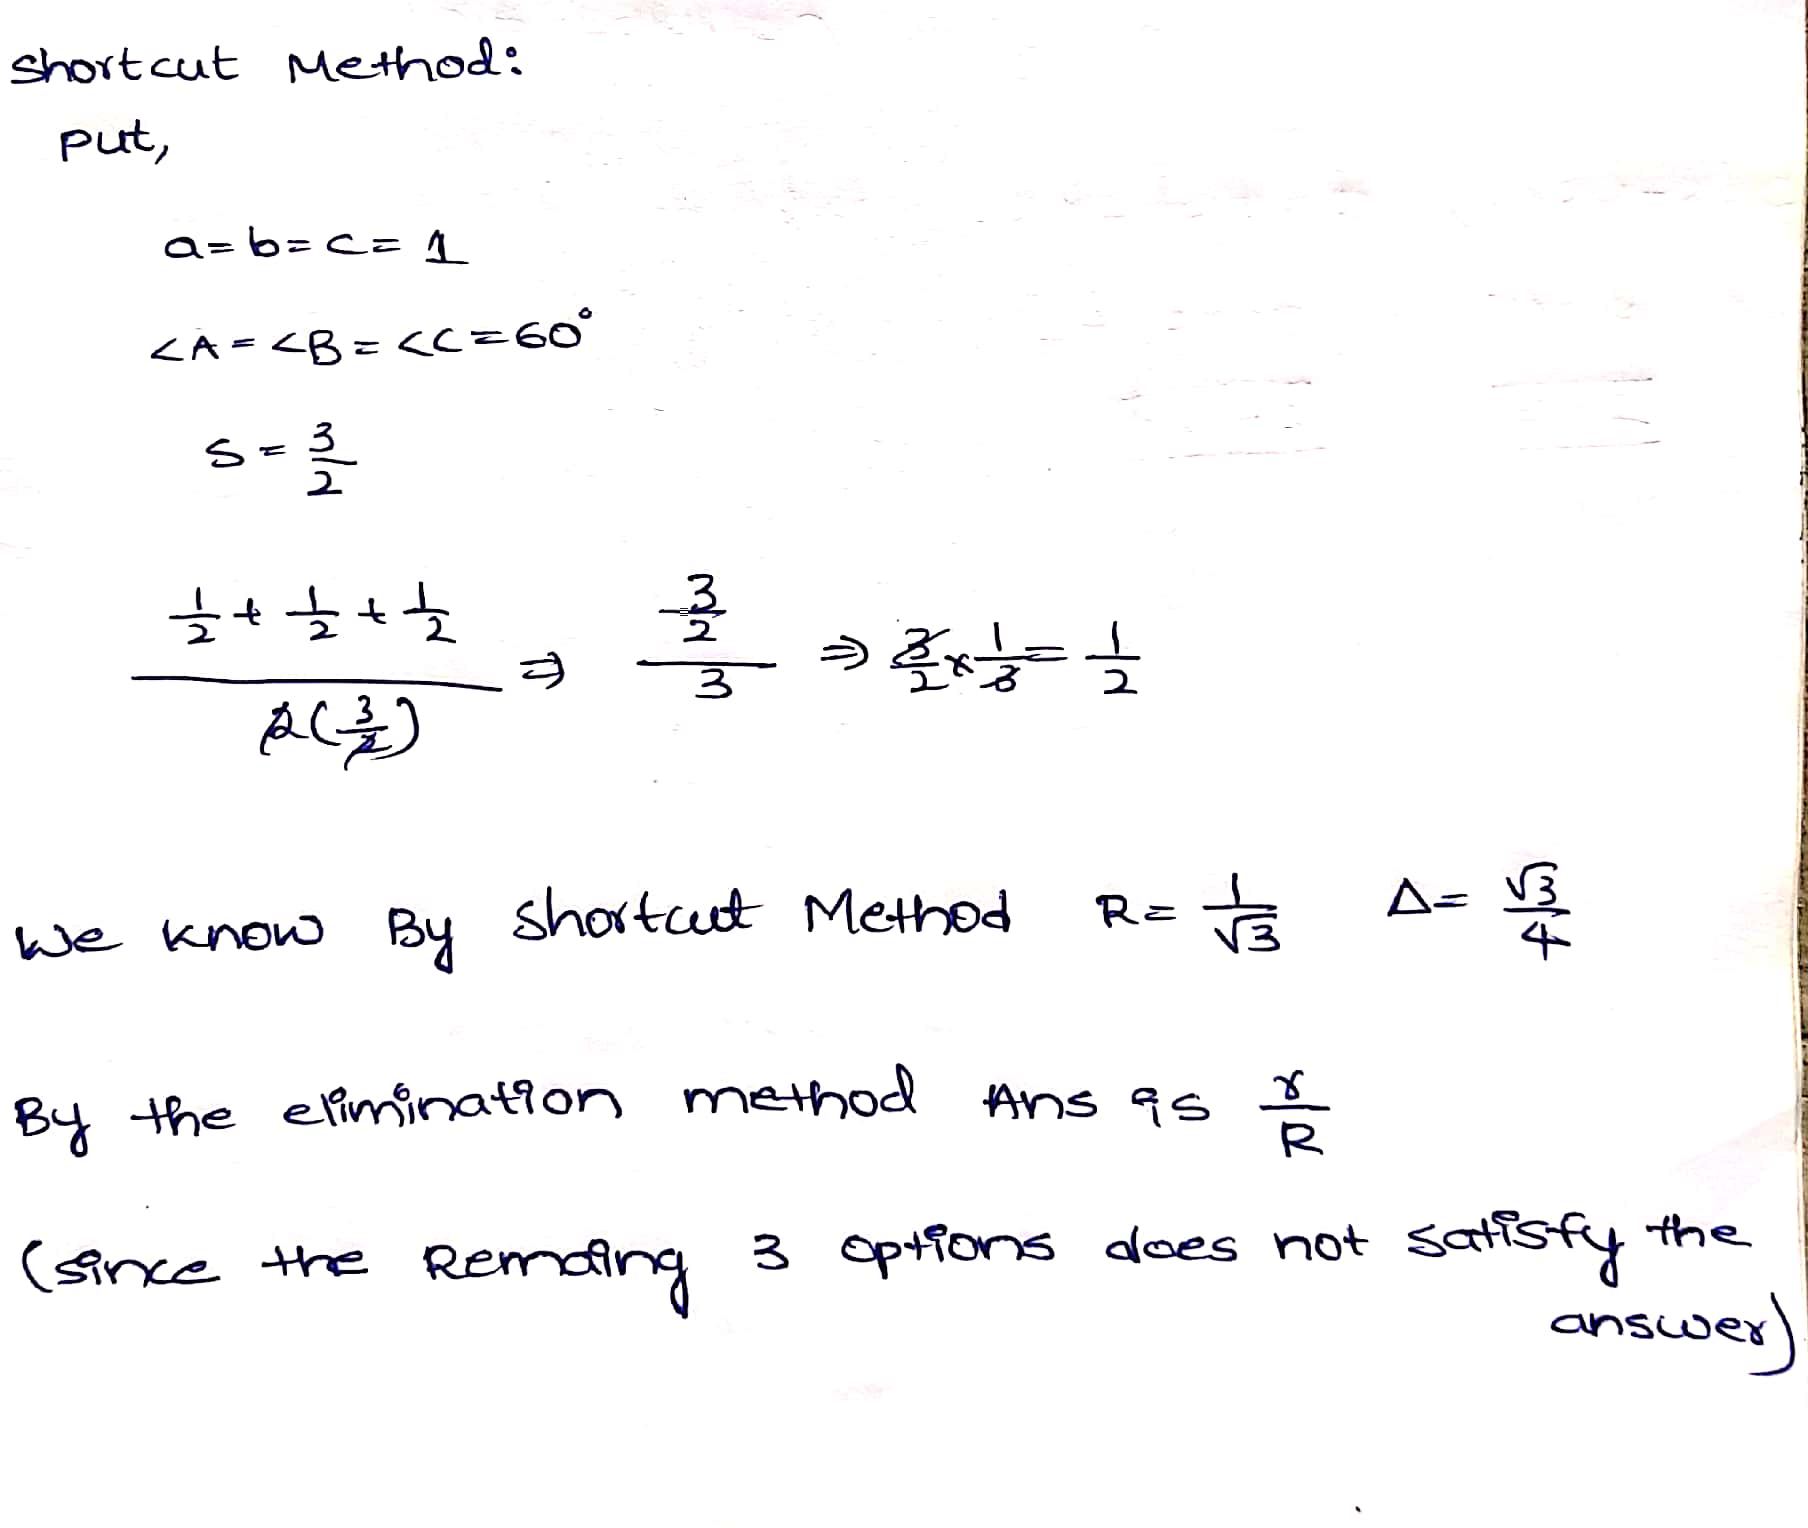 Shortcut Method:
put,
a = b = c = 1
<A = <B = <C = 60°
S = 3/2
(1/2 + 1/2 + 1/2) / 2(3/2) ⇒ (3/2)/3 ⇒ 3/2 × 1/3 = 1/2
We know By Shortcut Method R = 1/√3 Δ = √3/4
By the elimination method Ans is r/R
(since the Remaing 3 options does not satisfy the
answer)